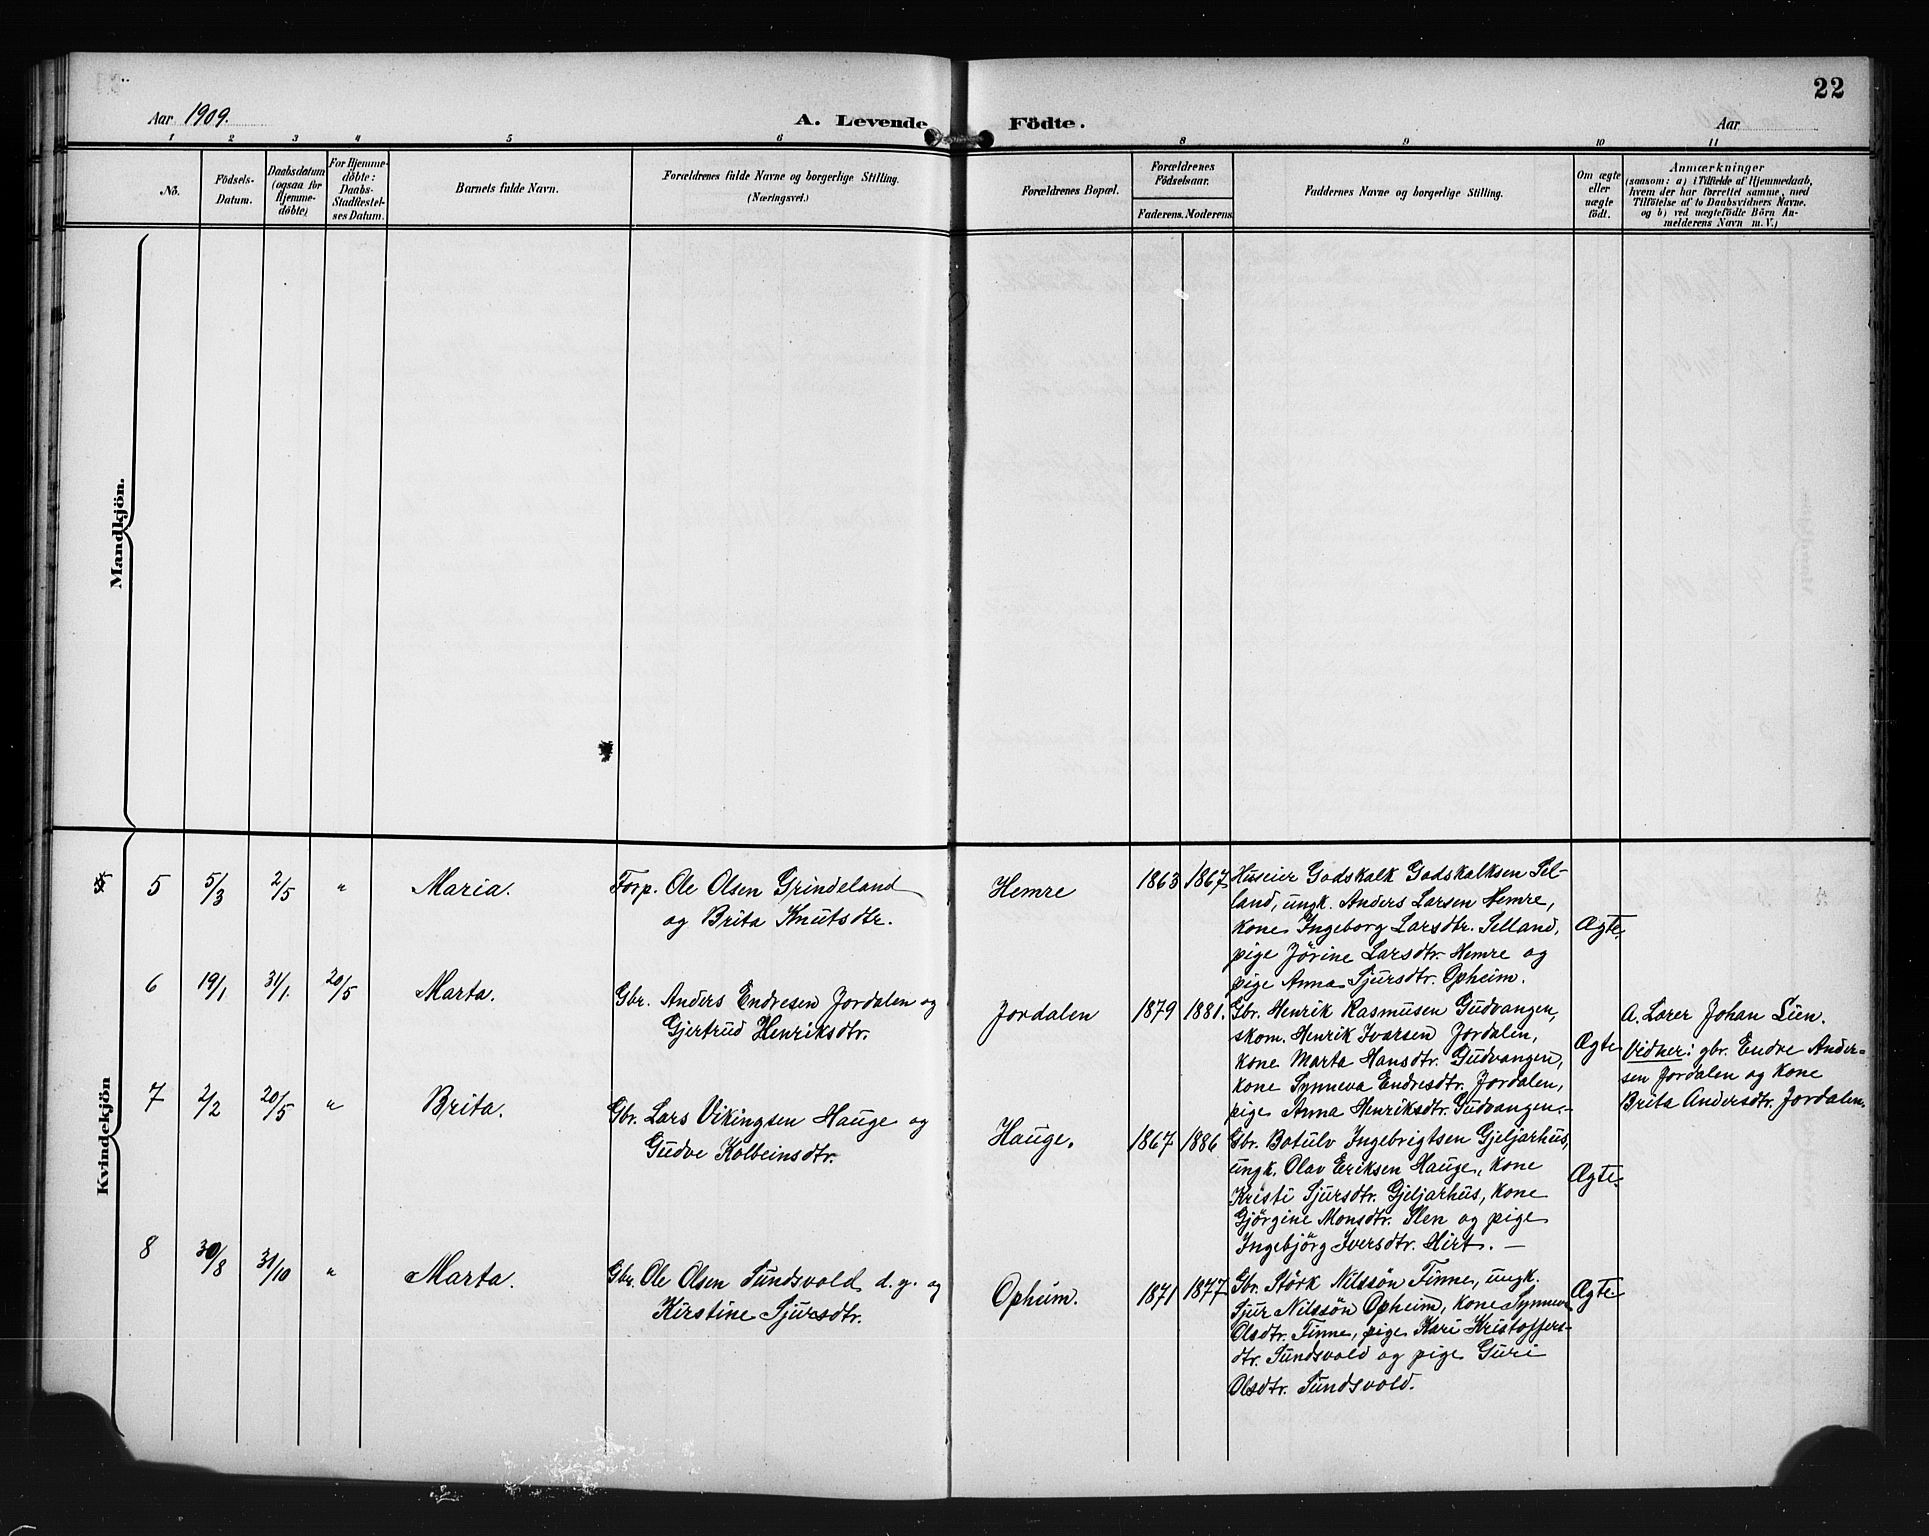 22
Aar 1909.
A. Levende
Födte.
Aar
1 2 3 4 5 6 8 9 10 11
Nö.
Födsels-
Datum.
Daabsdatum
(ogsaa for
Hjemme-
döbte)
For Hjemme-
döbte:
Daabs-
Stadfæstel-
ses Datum.
Barnets fulde Navn.
Forældrenes fulde Navne og borgerlige Stilling.
(Næringsvei.)
Forældrenes Bopæl.
Forældrenes
Födselsaar.
Faderens. Moderens.
Faddernes Navne og borgerlige Stilling.
Om ægte
eller
uægte
födt.
Anmærkninger
(saasom: a) i Tilfælde af Hjemmedaab,
hvem der har forrettet samme, med
Tilföielse af to Daabsvidners Navne.
og b) ved uægtefödte Börn An-
melderens Navn m. V.)
Mandkjön.
Kvindekjön
5 5/3 2/5 " Maria.
Forp. Ole Olsen Grindeland
og Brita Knutsdtr.
Hemre
1863 1867
Huseier Godskalk Godskalksen Sel-
land, ungk. Anders Larsen Hemre,
kone Ingeborg Larsdtr. Selland,
pige Jörine Larsdtr. Hemre og
pige Anna Sjursdtr. Opheim.
Ægte.
6 19/1 31/1. 20/5 Marta.
Gbr. Anders Endresen Jordalen og
Gjertrud Henriksdtr.
Jordalen
1879 1881.
Gbr. Henrik Rasmusen Gudvangen,
skom. Henrik Ivarsen Jordalen,
kone Marta Hansdtr. Gudvangen,
kone Synneva Endresdtr. Jordalen,
pige Anna Henriksdtr. Gudvangen.-
Ægte
A. Lærer Johan Lien.
Vidner: gbr. Endre Ander-
sen Jordalen og kone
Brita Andersdtr. Jordalen.
7 2/2 20/5 " Brita.
Gbr. Lars Vikingsen Hauge og
Gudve Kolbeinsdtr.
Hauge.
1867 1886
Gbr. Botulv Ingebrigtsen Gjeljarhus,
ungk. Olav Eriksen Hauge, kone
Kristi Sjursdtr. Gjeljarhus, kone
Gjörgine Monsdtr. Slen og pige
Ingebjörg Iversdtr. Hirt. —
Ægte.
8 30/8 31/10 " Marta.
Gbr. Ole Olsen Sundsvold d. y. og
Kirstine Sjursdtr.
Opheim.
1871 1877
Gbr. Störk Nilssön Finne, ungk.
Sjur Nilssön Opheim, kone Synneva
Olsdtr. Finne, pige Kari Kristoffers-
dtr. Sundsvold og pige Guri
Olsdtr. Sundsvold.
Ægte